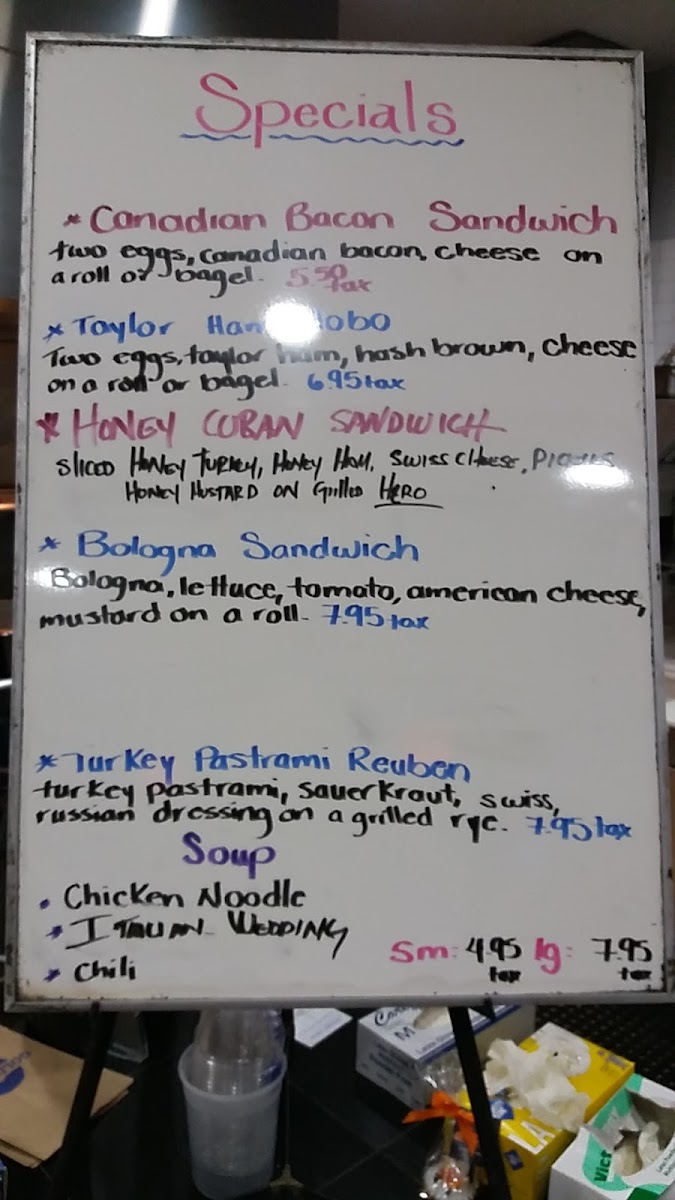 Specials
* Canadian Bacon Sandwich
two eggs, canadian bacon, cheese on
a roll or bagel. 5.50 tax
* Taylor Ham
Two eggs, taylor ham, hash brown, cheese
on a roll or bagel. 6.95 tax
* HONEY CUBAN SANDWICH
Sliced HONEY TURKEY, HONEY HAM, SWISS CHEESE, PICKLES
HONEY MUSTARD ON Grilled HERO
* Bologna Sandwich
Bologna, lettuce, tomato, american cheese,
mustard on a roll. 7.95 tax
* Turkey Pastrami Reuben
turkey pastrami, sauerkraut, swiss,
russian dressing on a grilled rye. 7.95 tax
Soup
• Chicken Noodle
* ITALIAN WEDDING
* Chili
Sm: 4.95 lg: 7.95
tax tax
M
LA
Vict